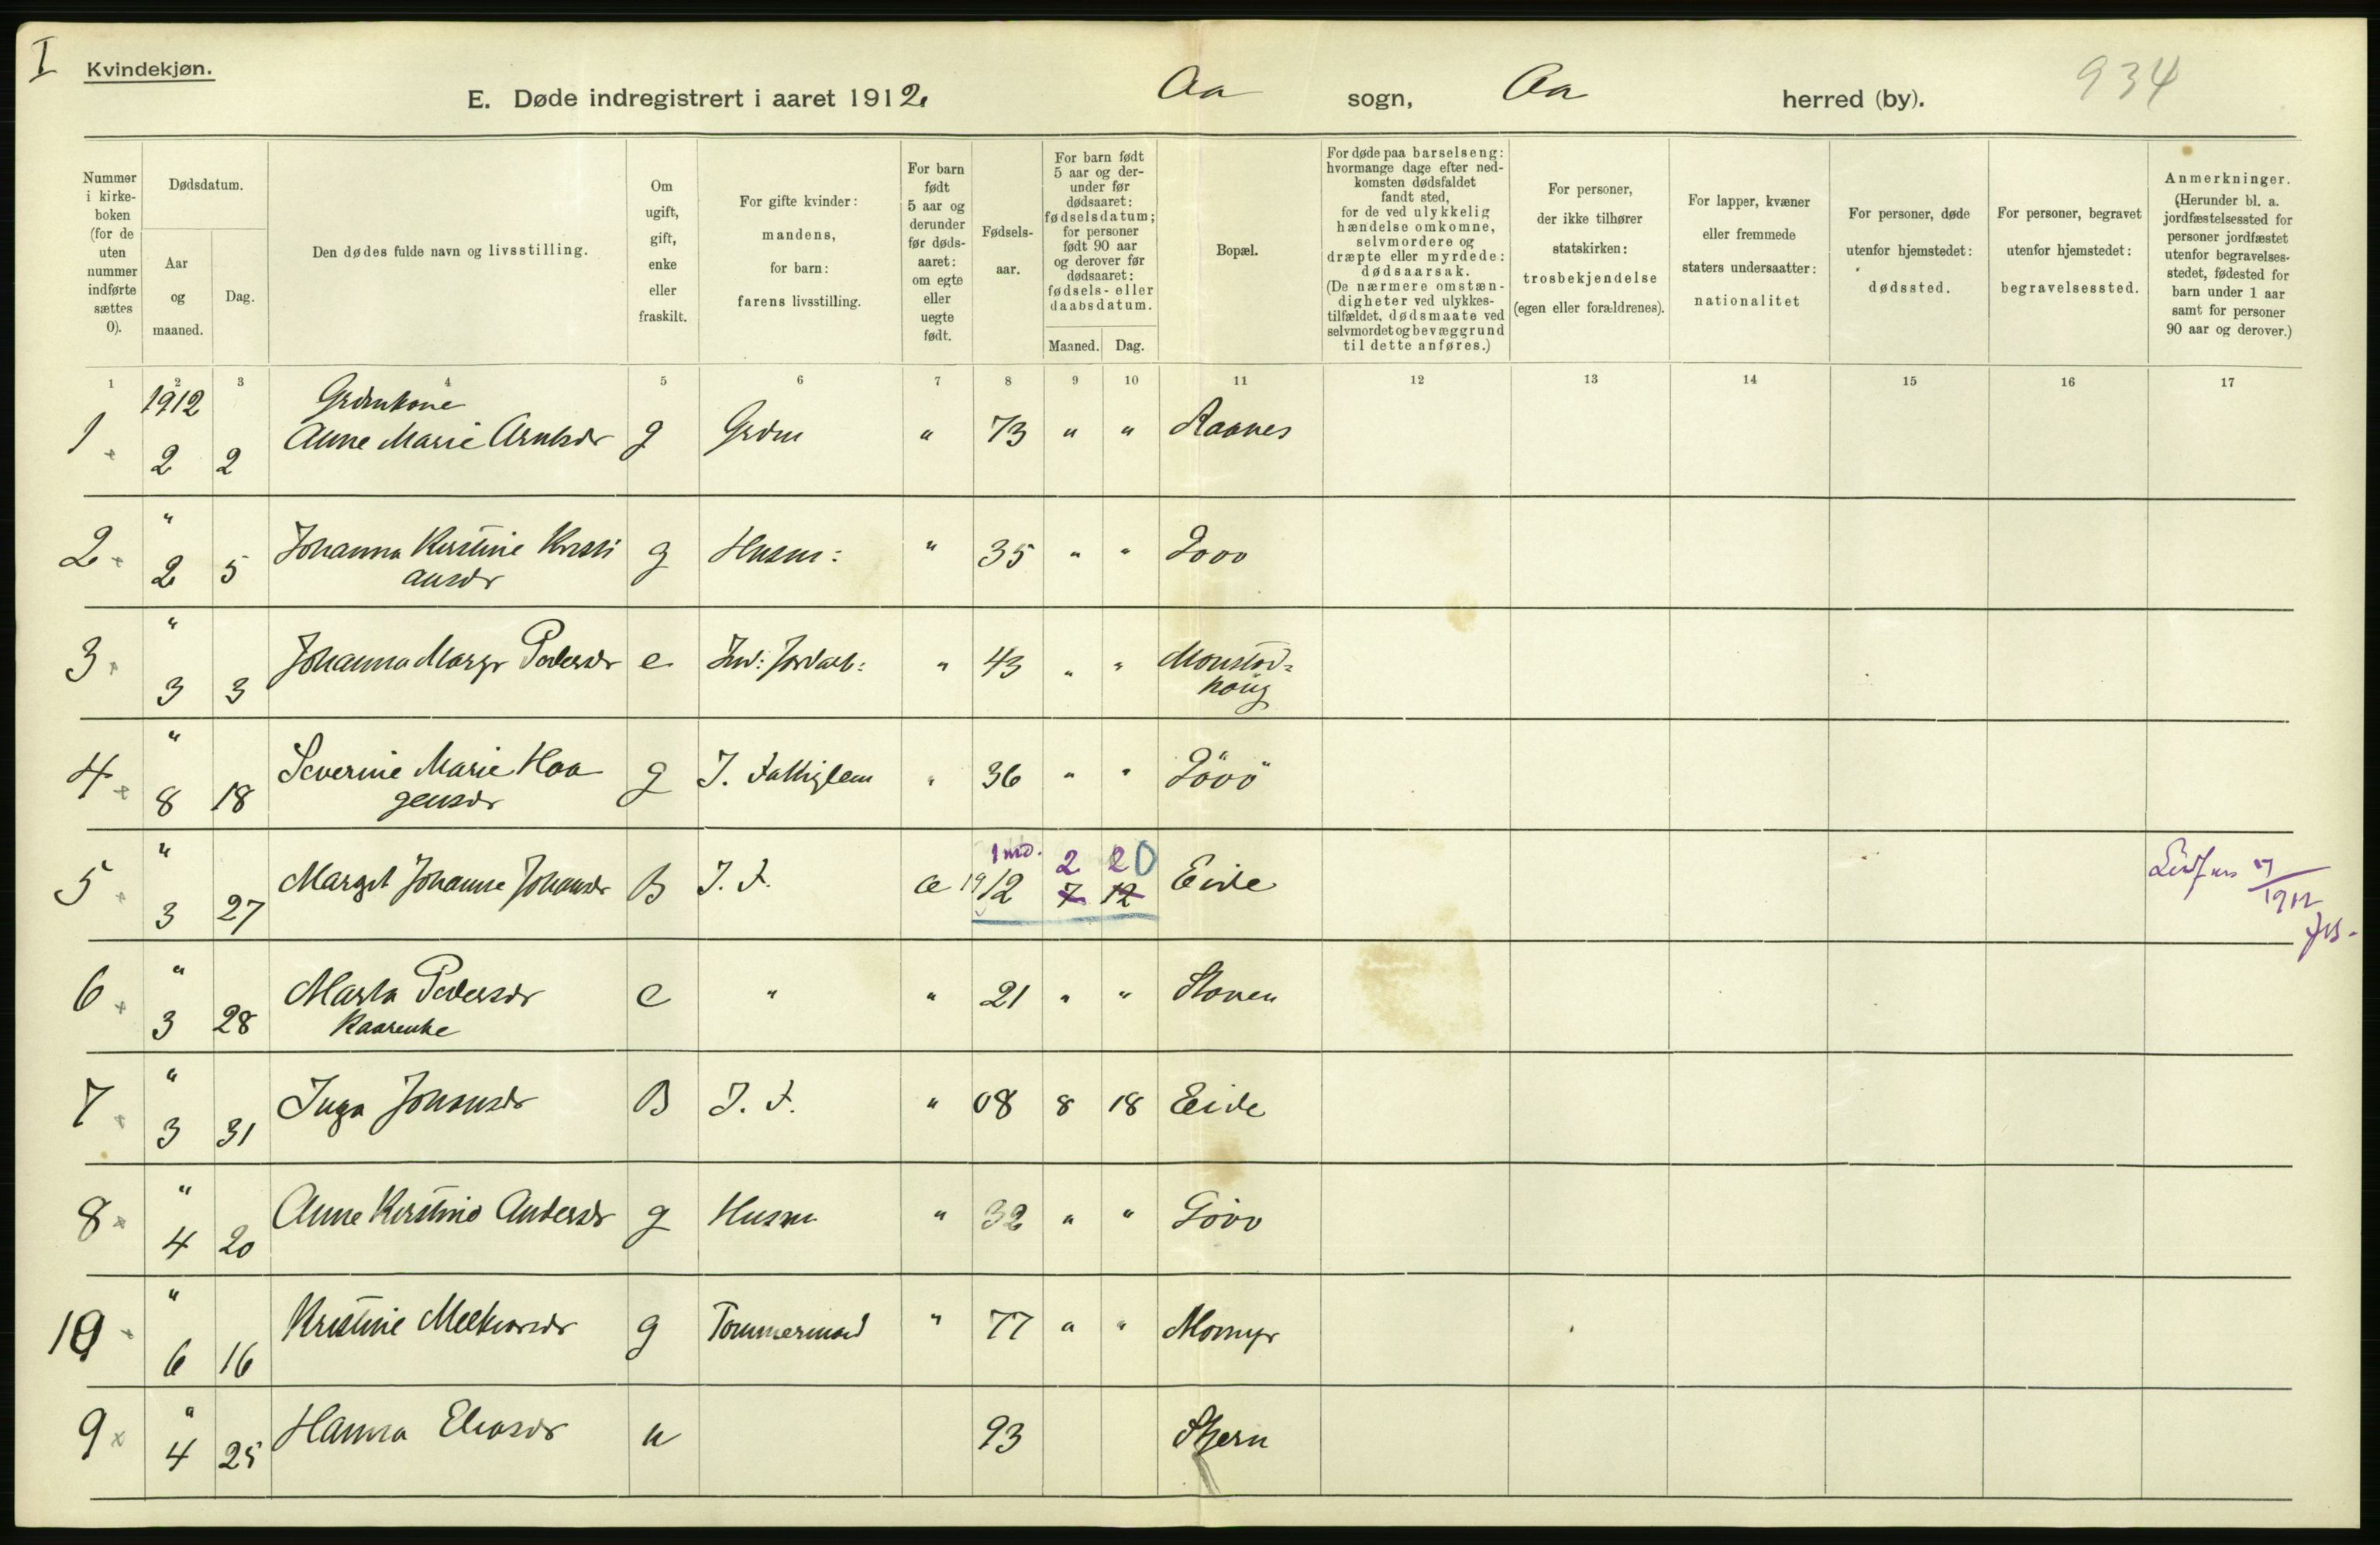 I
Kvindekjøn.
E. Døde indregistrert i aaret 1912. Aa sogn, Aa herred (by).
934
Nummer i kirke-boken (for de uten nummer indførte sættes 0).
Dødsdatum.
Aar og maaned.
Dag.
Den dødes fulde navn og livsstilling.
Om ugift, gift, enke eller fraskilt.
For gifte kvinder: mandens, for barn: farens livsstilling.
For barn født 5 aar og derunder før døds-aaret: om egte eller uegte født.
Fødsels-aar.
For barn født 5 aar og der-under før dødsaaret: fødselsdatum; for personer født 90 aar og derover før dødsaaret: fødsels- eller daabsdatum.
Maaned. Dag.
Bopæl.
For døde paa barselseng: hvormange dage efter ned-komsten dødsfaldet fandt sted, for de ved ulykkelig hændelse omkomne, selvmordere og dræpte eller myrdede: dødsaarsak. (De nærmere omstæn-digheter ved ulykkes-tilfældet, dødsmaate ved selvmordet og bevæggrund til dette anføres.)
For personer, der ikke tilhører statskirken: trosbekjendelse (egen eller forældrenes).
For lapper, kvæner eller fremmede staters undersaatter: nationalitet
For personer, døde utenfor hjemstedet: dødssted.
For personer, begravet utenfor hjemstedet: begravelsessted.
Anmerkninger. (Herunder bl. a. jordfæstelsessted for personer jordfæstet utenfor begravelses-stedet, fødested for barn under 1 aar samt for personer 90 aar og derover.)
1 2 3 4 5 6 7 8 9 10 11 12 13 14 15 16 17
1912 Grdmkone
1 2 2 Anne Marie Arntsdr g Grdm " 73 " " Raanes
"
2 2 5 Johanna Kirstine Kristi g Husm: " 35 " "
ansdr
"
3 3 3 Johanna Margr Pedersdr e Ind: Jordarb: " 43 " " Monstad=
haug
"
4 8 18 Severine Marie Haa g J. Fattiglem " 36 " "
gensdr
" 1 md. 2 20
5 3 27 Margit Johanne Johansdr B J. F. æ 1912 7 12 Eide
1912
"
6 3 28 Marta Pedersdr e " " 21 " "
Kaarenke
"
7 3 31 Inga Johansdr B J. F. " 08 8 18 Eide
"
8 4 20 Anne Kirstine Andersdr g Husm " 32 " "
"
10 6 16 Kristine Melkiorsdr g Tømmermand " 77 " " Momyr
"
9 4 25 Hanna Eliasdr u 93 Skjern